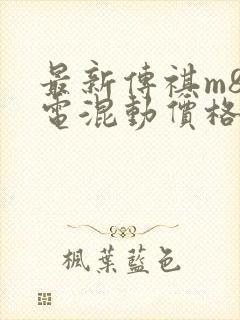 最新傳祺m8
電混動價格
楓葉藍色